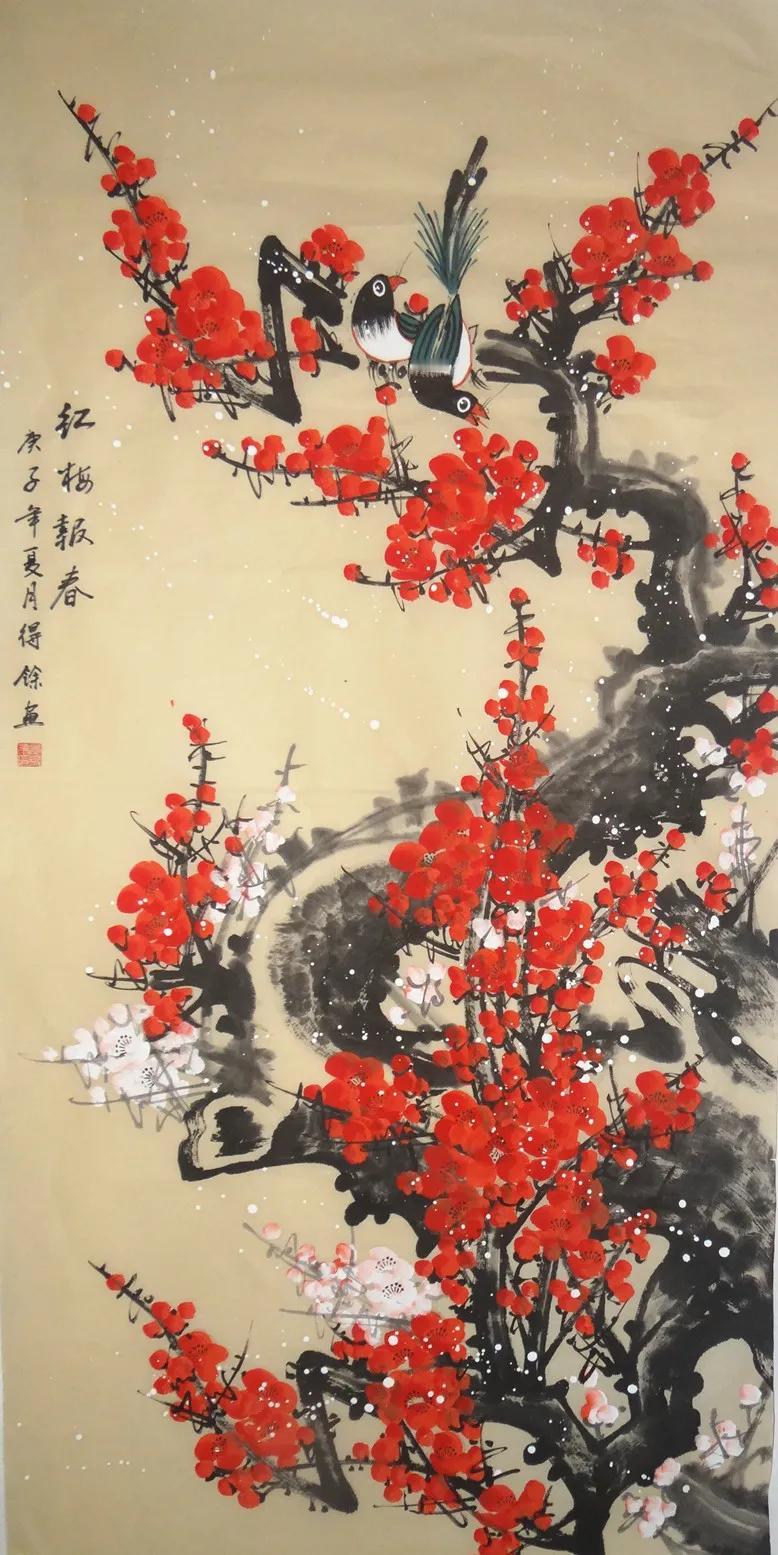 红梅報春
庚子年夏月得餘畫